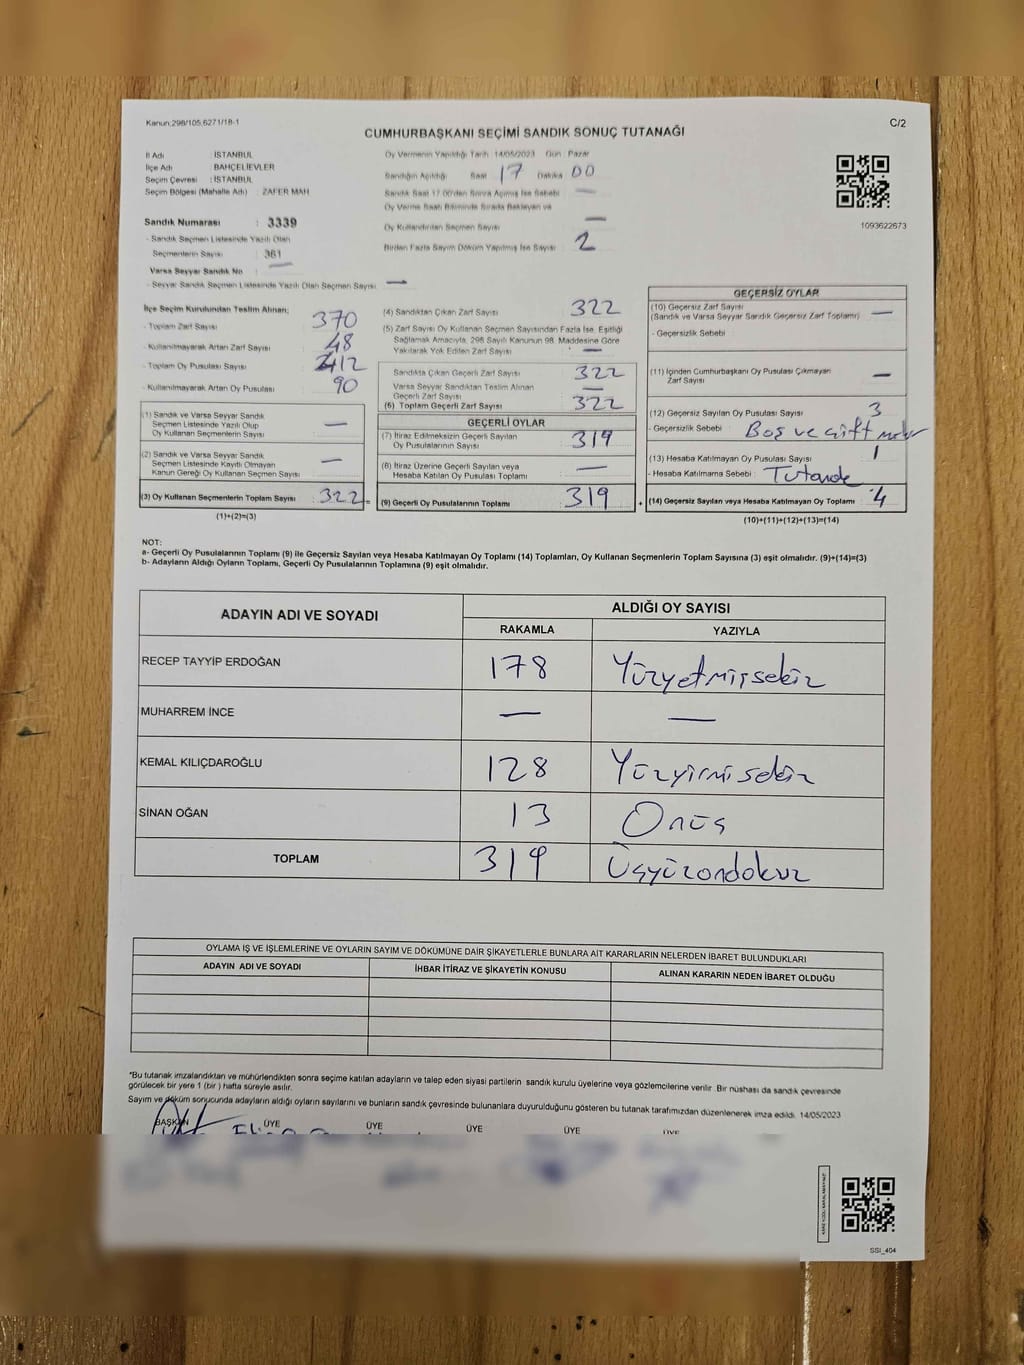 Kanun:298/105,6271/18-1
C/2
CUMHURBAŞKANI SEÇİMİ SANDIK SONUÇ TUTANAĞI
İl Adı : İSTANBUL
İlçe Adı : BAHÇELİEVLER
Seçim Çevresi : İSTANBUL
Seçim Bölgesi (Mahalle Adı) : ZAFER MAH
Sandık Numarası : 3339
- Sandık Seçmen Listesinde Yazılı Olan
Seçmenlerin Sayısı : 361
Varsa Seyyar Sandık No —
- Seyyar Sandık Seçmen Listesinde Yazılı Olan Seçmen Sayısı : —
Oy Vermenin Yapıldığı Tarih 14/05/2023 Gün : Pazar
Sandığın Açıldığı Saat 17 Dakika 00
Sandık Saat 17.00'den Sonra Açılmış İse Sebebi —
Oy Verme Saati Bitiminde Sırada Bekleyen ve
Oy Kullandırılan Seçmen Sayısı —
Birden Fazla Sayım Döküm Yapılmış İse Sayısı : 2
1093622673
İlçe Seçim Kurulundan Teslim Alınan;
- Toplam Zarf Sayısı : 370
- Kullanılmayarak Artan Zarf Sayısı : 48
- Toplam Oy Pusulası Sayısı : 412
- Kullanılmayarak Artan Oy Pusulası : 90
(1) Sandık ve Varsa Seyyar Sandık
Seçmen Listesinde Yazılı Olup
Oy Kullanan Seçmenlerin Sayısı —
(2) Sandık ve Varsa Seyyar Sandık
Seçmen Listesinde Kayıtlı Olmayan
Kanun Gereği Oy Kullanan Seçmen Sayısı —
(3) Oy Kullanan Seçmenlerin Toplam Sayısı 322 =
(1)+(2)=(3)
(4) Sandıktan Çıkan Zarf Sayısı : 322
(5) Zarf Sayısı Oy Kullanan Seçmen Sayısından Fazla İse, Eşitliği
Sağlamak Amacıyla, 298 Sayılı Kanunun 98. Maddesine Göre
Yakılarak Yok Edilen Zarf Sayısı : —
Sandıkta Çıkan Geçerli Zarf Sayısı : 322
Varsa Seyyar Sandıktan Teslim Alınan
Geçerli Zarf Sayısı : —
(6) Toplam Geçerli Zarf Sayısı : 322
GEÇERLİ OYLAR
(7) İtiraz Edilmeksizin Geçerli Sayılan
Oy Pusulası Toplamı 319
(8) İtiraz Üzerine Geçerli Sayılan veya
Hesaba Katılan Oy Pusulası Toplamı —
(9) Geçerli Oy Pusulalarının Toplamı 319 +
GEÇERSİZ OYLAR
(10) Geçersiz Zarf Sayısı
(Sandık ve Varsa Seyyar Sandık Geçersiz Zarf Toplamı) : —
- Geçersizlik Sebebi :
(11) İçinden Cumhurbaşkanı Oy Pusulası Çıkmayan
Zarf Sayısı : —
(12) Geçersiz Sayılan Oy Pusulası Sayısı : 3
- Geçersizlik Sebebi : Boş ve çift
(13) Hesaba Katılmayan Oy Pusulası Sayısı : 1
- Hesaba Katılmama Sebebi :
(14) Geçersiz Sayılan veya Hesaba Katılmayan Oy Toplamı 4
(10)+(11)+(12)+(13)=(14)
NOT:
a- Geçerli Oy Pusulalarının Toplamı (9) ile Geçersiz Sayılan veya Hesaba Katılmayan Oy Toplamı (14) Toplamları, Oy Kullanan Seçmenlerin Toplam Sayısına (3) eşit olmalıdır. (9)+(14)=(3)
b- Adayların Aldığı Oyların Toplamı, Geçerli Oy Pusulalarının Toplamına (9) eşit olmalıdır.
ADAYIN ADI VE SOYADI ALDIĞI OY SAYISI
RAKAMLA YAZIYLA
RECEP TAYYİP ERDOĞAN 178 Yüzyetmişsekiz
MUHARREM İNCE — —
KEMAL KILIÇDAROĞLU 128 Yüzyirmisekiz
SİNAN OĞAN 13 Onüç
TOPLAM 319 Üçyüzondokuz
OYLAMA İŞ VE İŞLEMLERİNE VE OYLARIN SAYIM VE DÖKÜMÜNE DAİR ŞİKAYETLERLE BUNLARA AİT KARARLARIN NELERDEN İBARET BULUNDUKLARI
ADAYIN ADI VE SOYADI İHBAR İTİRAZ VE ŞİKAYETİN KONUSU ALINAN KARARIN NEDEN İBARET OLDUĞU
*Bu tutanak imzalandıktan ve mühürlendikten sonra seçime katılan adayların ve talep eden siyasi partilerin sandık kurulu üyelerine veya gözlemcilerine verilir. Bir nüshası da sandık çevresinde
görülecek bir yere 1 (bir) hafta süreyle asılır.
Sayım ve döküm sonucunda adayların aldığı oyların sayılarını ve bunların sandık çevresinde bulunanlara duyurulduğunu gösteren bu tutanak tarafımızdan düzenlenerek imza edildi. 14/05/2023
BAŞKAN ÜYE ÜYE ÜYE ÜYE ÜYE
SSI_404